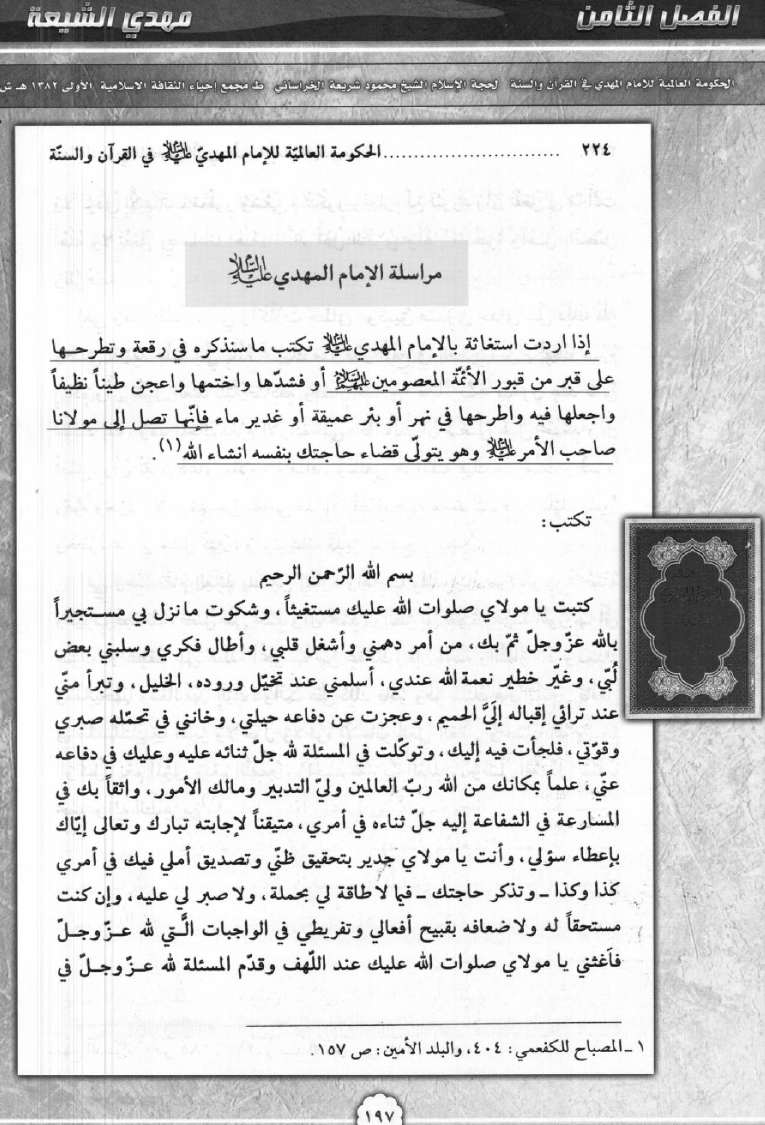 الفصل الثامن
مهدي الشيعة
الحكومة العالمية للإمام المهدي في القرآن والسنة لحجة الإسلام الشيخ محمود شريعة الخراساني ط مجمع إحياء الثقافة الاسلامية الأولى ١٣٨٢ هـ ش
٢٢٤ ............................ الحكومة العالميّة للإمام المهديّ عليه السلام في القرآن والسنّة
مراسلة الإمام المهدي عليه السلام
إذا اردت استغاثة بالإمام المهدي عليه السلام تكتب ما سنذكره في رقعة وتطرحـها
على قبر من قبور الأئمّة المعصومين عليهم السلام أو فشدّها واختمها واعجن طيناً نظيفاً
واجعلها فيه واطرحها في نهر أو بئر عميقة أو غدير ماء فإنّها تصل إلى مولانا
صاحب الأمر عليه السلام وهو يتولّى قضاء حاجتك بنفسه انشاء الله (١).
تكتب:
بسم الله الرّحمن الرحيم
كتبت يا مولاي صلوات الله عليك مستغيثاً، وشكوت ما نزل بي مستجيراً
بالله عزّ وجلّ ثمّ بك، من أمر دهمني وأشغل قلبي، وأطال فكري وسلبني بعض
لُبّي، وغيّر خطير نعمة الله عندي، أسلمني عند تخيّل وروده، الخليل، وتبرأ منّي
عند ترائي إقباله إليَّ الحميم، وعجزت عن دفاعه حيلتي، وخانني في تحمّله صبري
وقوّتي، فلجأت فيه إليك، وتوكّلت في المسئلة لله جلّ ثنائه عليه وعليك في دفاعه
عنّي، علماً بمكانك من الله ربّ العالمين وليّ التدبير ومالك الأمور، واثقاً بك في
المسارعة في الشفاعة إليه جلّ ثناءه في أمري، متيقناً لإجابته تبارك وتعالى إيّاك
بإعطاء سؤلي، وأنت يا مولاي جدير بتحقيق ظنّي وتصديق أملي فيك في أمري
كذا وكذا ـ وتذكر حاجتك ـ فيما لا طاقة لي بحملة، ولا صبر لي عليه، وإن كنت
مستحقاً له ولا ضعافه بقبيح أفعالي وتفريطي في الواجبات الَّتي لله عـزّ وجـلّ
فأغثني يا مولاي صلوات الله عليك عند اللّهف وقدّم المسئلة لله عـزّ وجـلّ في
١ ـ المصباح للكفعمي: ٤٠٤، والبلد الأمين: ص ١٥٧.
١٩٧